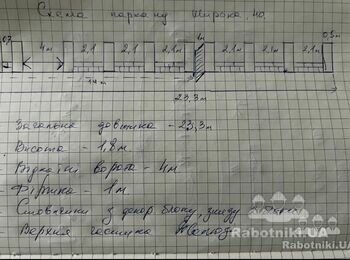 Схема паркану Широка, 40
0,7 4м 2,1 2,1 2,1м 1м 2,1м 2,1м 2,1м 0,5м
14м
23,3м
Загальна довжина - 23,3м
Висота - 1,8м
Відкатні ворота - 4м
Фіртка - 1м
Стовпчики з декор блоку, знизу
Верхня частина
Rabotniki.UA
Rabotniki.UA